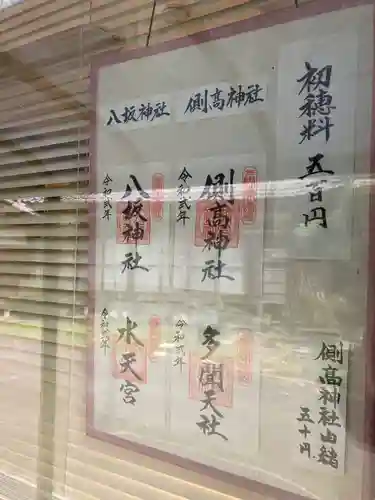 初穂料 五百円
側高神社
八坂神社
側高神社
令和弐年
八坂神社
令和弐年
多聞天社
令和弐年
水天宮
令和弐年
側高神社由緒
五十円